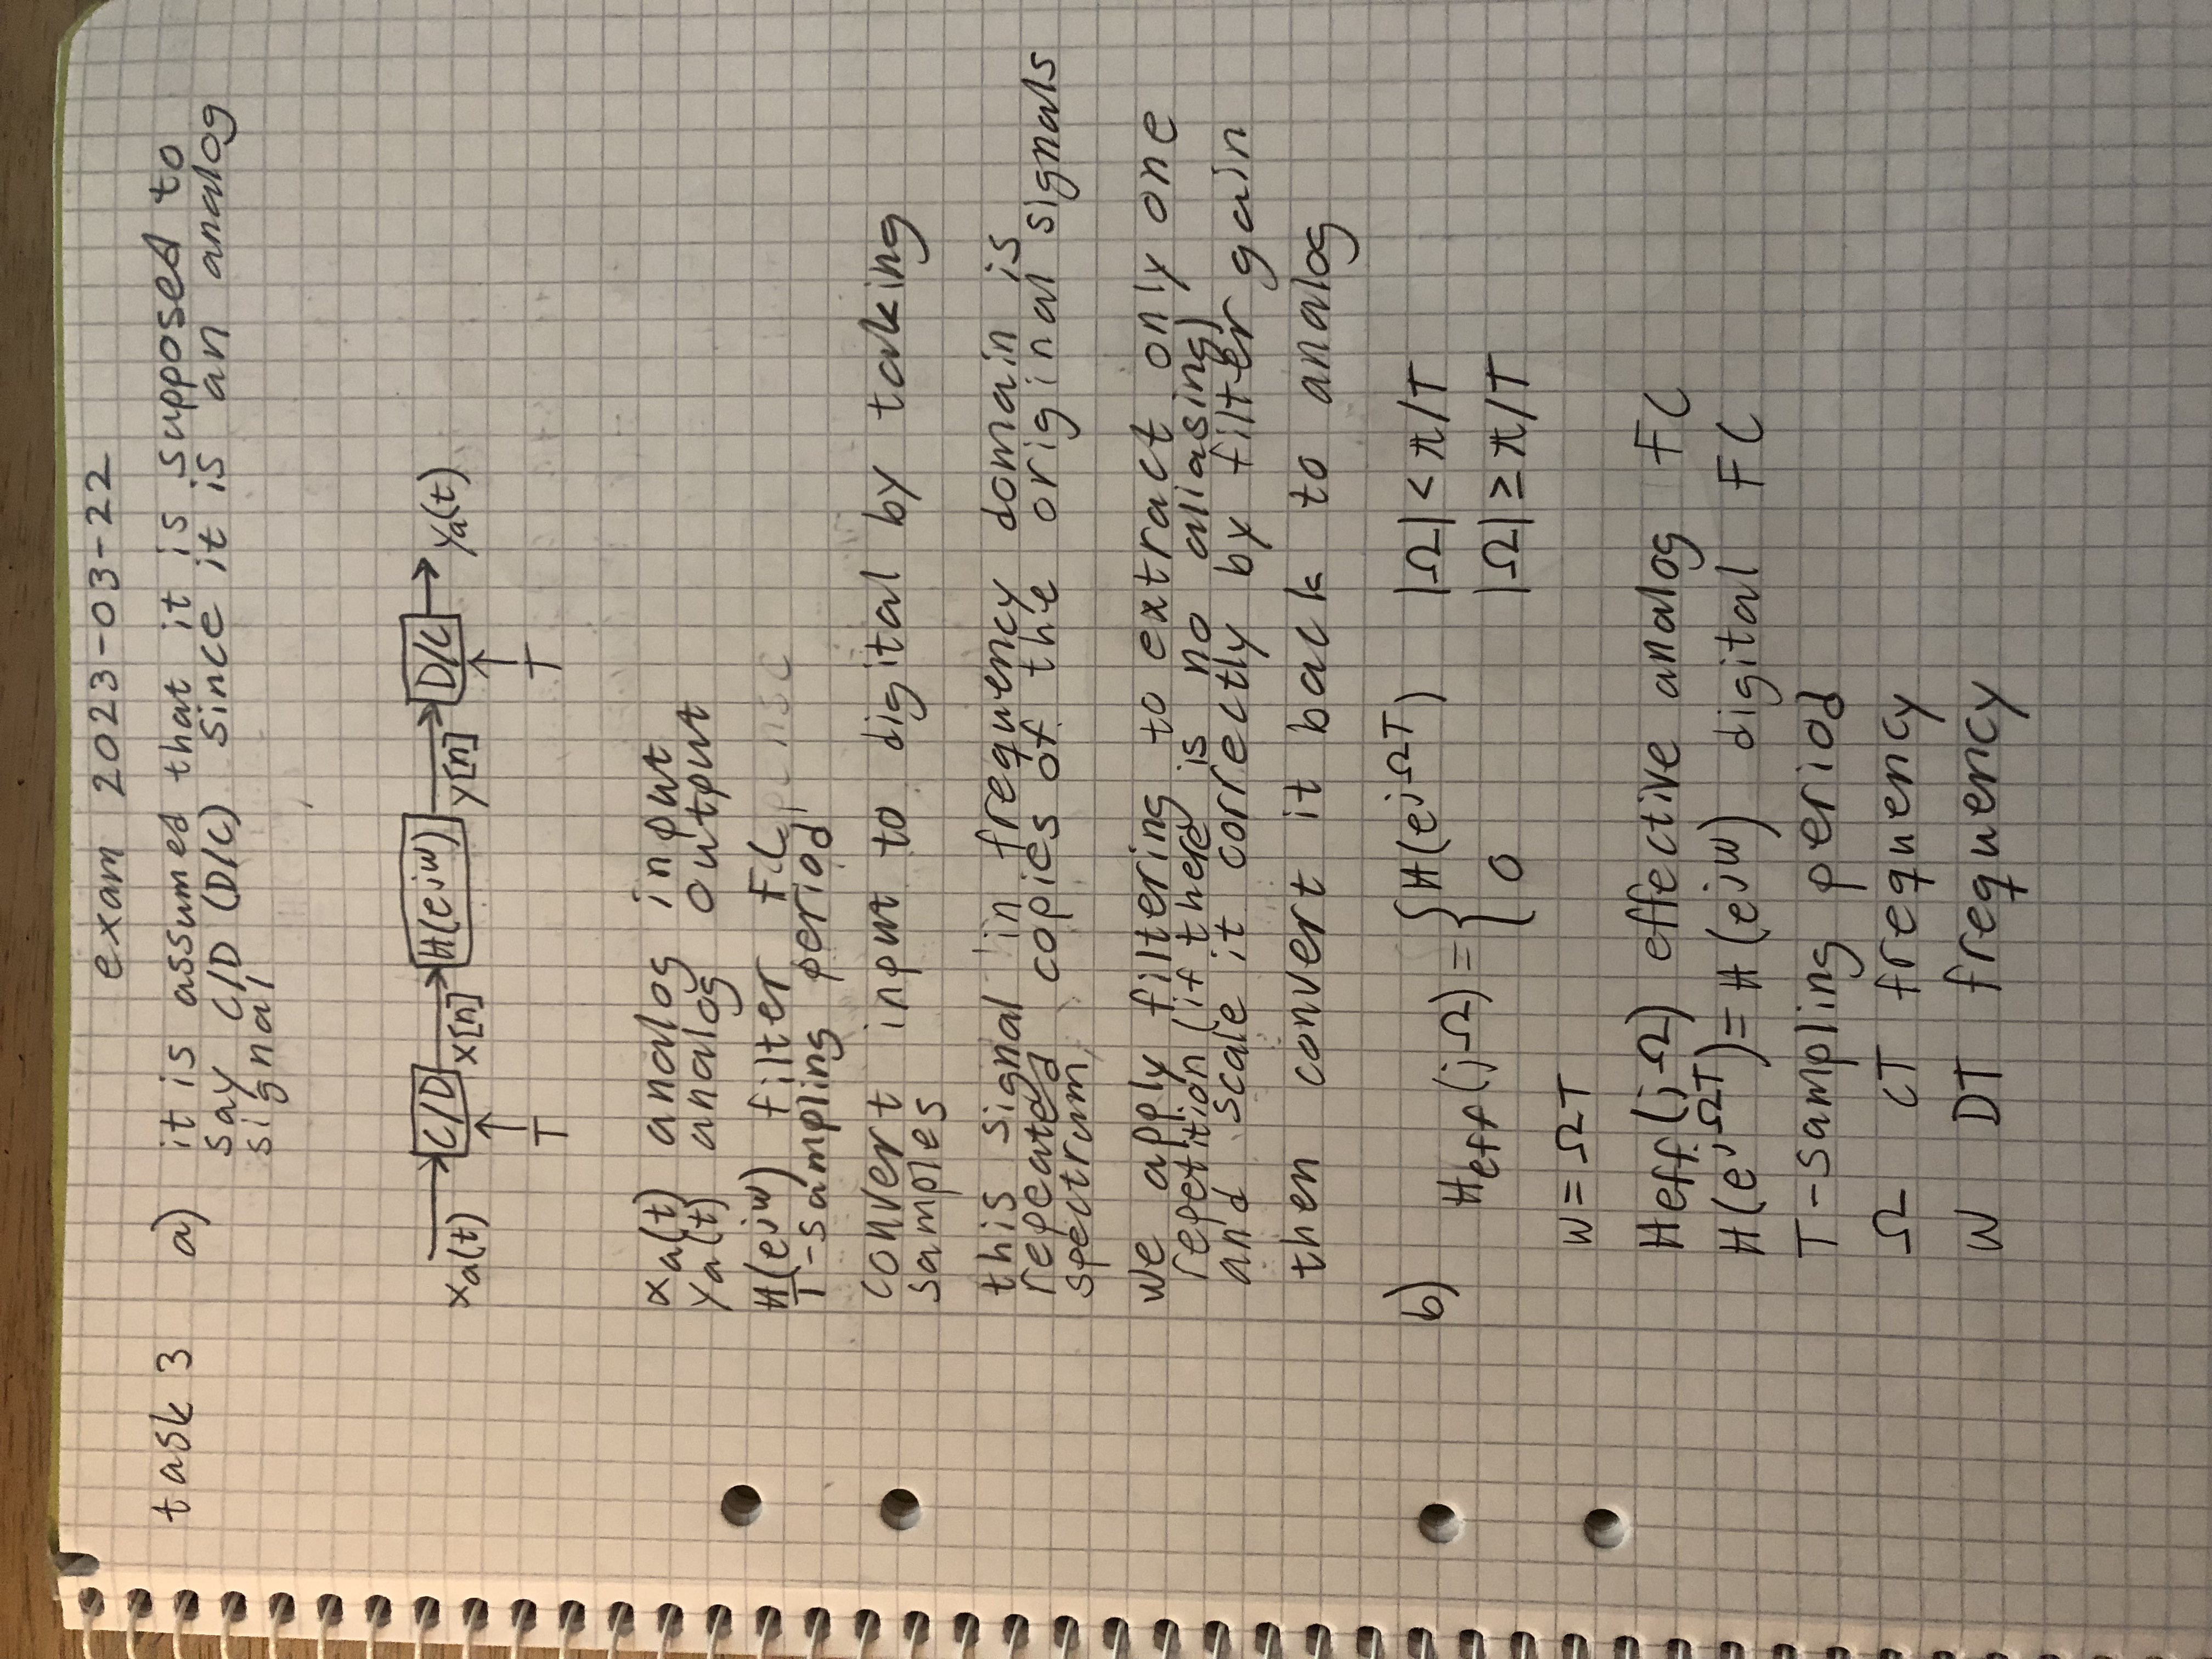 exam 2023-03-22
task 3 a) it is assumed that it is supposed to
say C/D (D/C) since it is an analog
signal
xa(t) C/D x[n] H(e^jw) y[n] D/C ya(t)
T T
xa(t) analog input
ya(t) analog output
H(e^jw) filter FC
T-sampling period
convert input to digital by taking
samples
this signal in frequency domain is
repeated copies of the original signals
spectrum,
we apply filtering to extract only one
repetition (if there is no aliasing)
and scale it correctly by filter gain
then convert it back to analog
b) Heff(jΩ) = { H(e^jΩT) |Ω| < π/T
0 |Ω| ≥ π/T
w = ΩT
Heff(jΩ) effective analog FC
H(e^jΩT) = H(e^jw) digital FC
T-sampling period
Ω CT frequency
w DT frequency